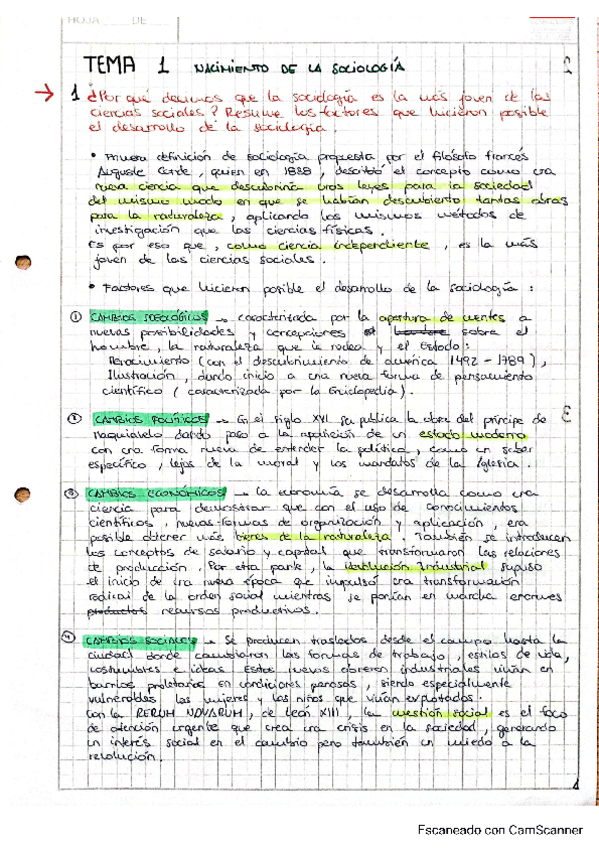 HOJA DE
TEMA 1 NACIMIENTO DE LA SOCIOLOGÍA
→ 1 ¿Por qué decimos que la sociología es la más joven de las
ciencias sociales? Resume los factores que hicieron posible
el desarrollo de la sociología.
• Primera definición de sociología propuesta por el filósofo francés
Auguste Comte, quien en 1838, describió el concepto como una
nueva ciencia que descubriría unas leyes para la sociedad
del mismo modo en que se habían descubierto tantas otras
para la naturaleza, aplicando los mismos métodos de
investigación que las ciencias físicas.
Es por eso que, como ciencia independiente, es la más
joven de las ciencias sociales.
• Factores que hicieron posible el desarrollo de la sociología:
① CAMBIOS IDEOLÓGICOS → caracterizada por la apertura de mentes a
nuevas posibilidades y concepciones sobre el
hombre, la naturaleza que le rodea y el Estado:
Renacimiento (con el descubrimiento de américa 1492 - 1789),
Ilustración, dando inicio a una nueva forma de pensamiento
científico (caracterizada por la Enciclopedia).
② CAMBIOS POLÍTICOS → En el siglo XVI se publica la obra del príncipe de
Maquiavelo dando paso a la aparición de un estado moderno
con una forma nueva de entender la política, como un saber
específico, lejos de la moral y los mandatos de la Iglesia.
③ CAMBIOS ECONÓMICOS → la economía se desarrolla como una
ciencia para demostrar que con el uso de conocimientos
científicos, nuevas formas de organización y aplicación, era
posible obtener más bienes de la naturaleza. También se introducen
los conceptos de salario y capital que transformaron las relaciones
de producción. Por otra parte, la Revolución Industrial supuso
el inicio de una nueva época que impulsó una transformación
radical de la orden social mientras se ponían en marcha enormes
productos recursos productivos.
④ CAMBIOS SOCIALES → Se producen traslados desde el campo hasta la
ciudad donde cambiaron las formas de trabajo, estilos de vida,
costumbres e ideas. Estos nuevos obreros industriales vivían en
barrios proletarios en condiciones penosas, siendo especialmente
vulnerables las mujeres y los niños que vivían explotados.
Con la RERUM NOVARUM, de León XIII, la cuestión social es el foco
de atención urgente que crea una crisis en la sociedad, generando
un interés social en el cambio pero también un miedo a la
revolución.
Escaneado con CamScanner